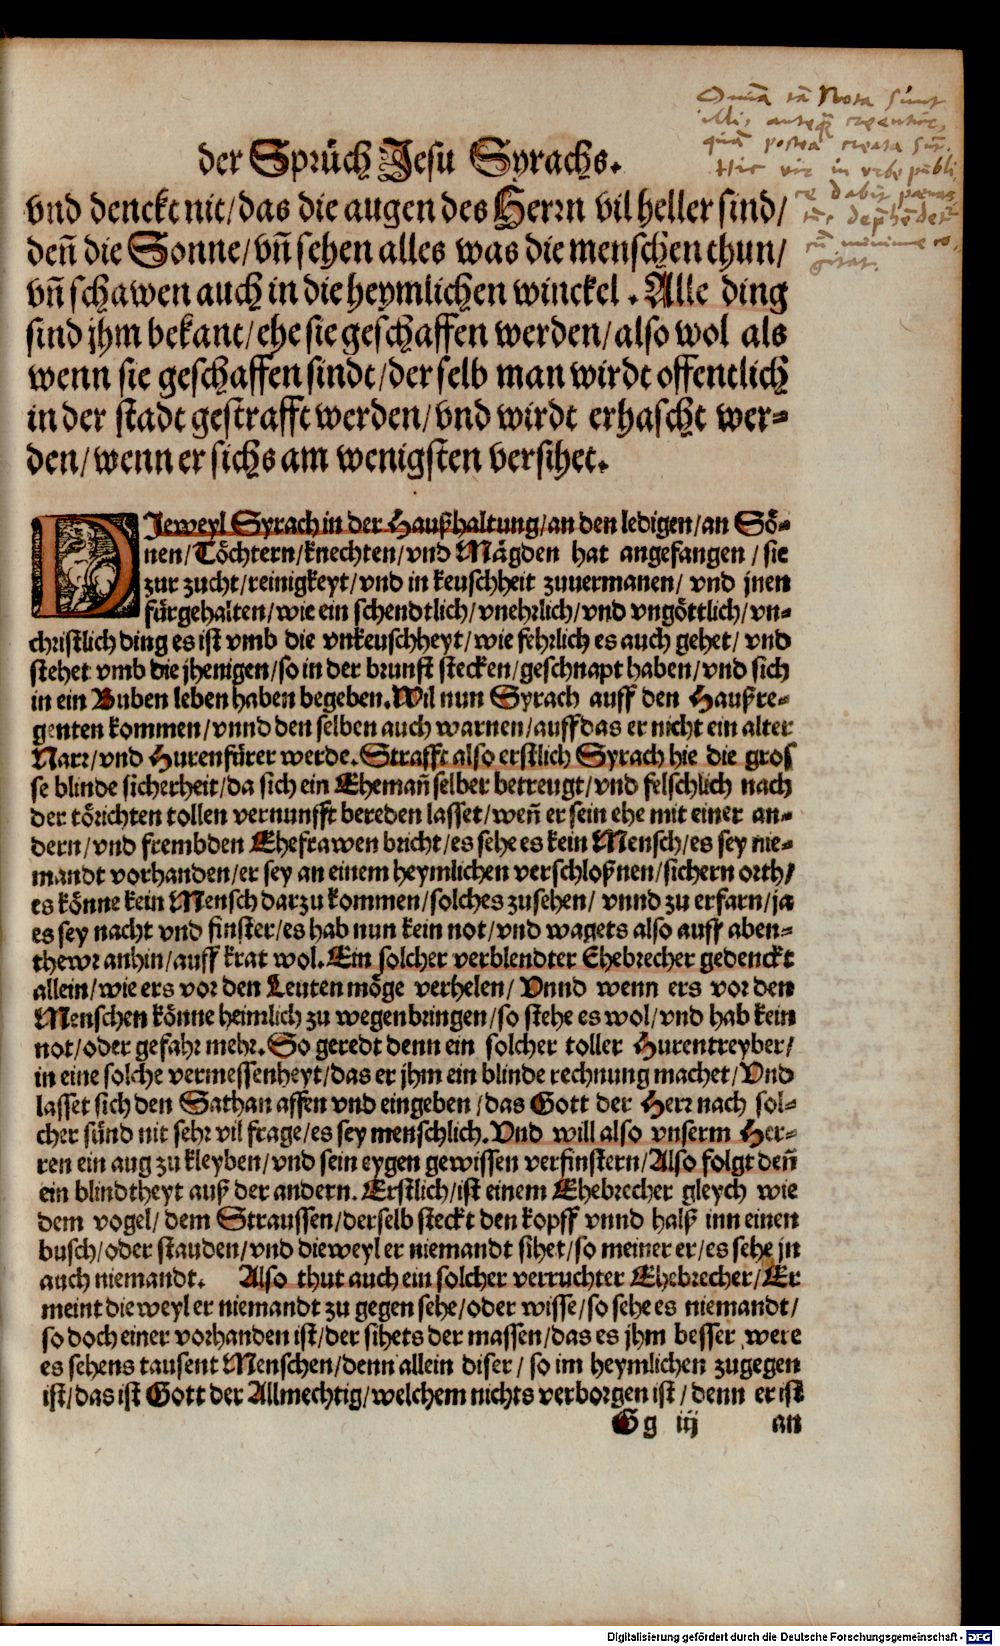 der Sprüch Jesu Syrachs.
vnd denckt nit/das die augen des Herrn vil heller sind/
deñ die Sonne/vñ sehen alles was die menschen thun/
vñ schawen auch in die heymlichen winckel. Alle ding
sind jhm bekant/ehe sie geschaffen werden/also wol als
wenn sie geschaffen sindt/der selb man wirdt offentlich
in der stadt gestrafft werden/vnd wirdt erhascht wer-
den/wenn er sichs am wenigsten versihet.
Omnia iã Nota sunt
illi, anteq̃ creentur,
quã postea creata sũt.
Hic vir in vrbe publi,
ce dabit pœnas,
cũ minime co,
gitat.
DJeweyl Syrach in der Haußhaltung/an den ledigen/an Sö-
nen/Töchtern/knechten/vnd Mägden hat angefangen/sie
zur zucht/reinigkeyt/vnd in keuschheit zuuermanen/vnd jnen
fürgehalten/wie ein schendtlich/vnehrlich/vnd vngöttlich/vn-
christlich ding es ist vmb die vnkeuschheyt/wie fehrlich es auch gehet/vnd
stehet vmb die jhenigen/so in der brunst stecken/geschnapt haben/vnd sich
in ein Buben leben haben begeben. Wil nun Syrach auff den Haußre-
genten kommen/vnnd den selben auch warnen/auff das er nicht ein alter
Narr/vnd Hurenfürer werde. Strafft also erstlich Syrach hie die gros
se blinde sicherheit/da sich ein Ehemañ selber betreugt/vnd felschlich nach
der törichten tollen vernunfft bereden lasset/weñ er sein ehe mit einer an-
dern/vnd frembden Ehefrawen bricht/es sehe es kein Mensch/es sey nie-
mandt vorhanden/er sey an einem heymlichen verschloßnen/sichern orth/
es könne kein Mensch darzu kommen/solches zusehen/vnnd zu erfarn/ja
es sey nacht vnd finster/es hab nun kein not/vnd wagets also auff aben-
thewr anhin/auff krat wol. Ein solcher verblendter Ehebrecher gedenckt
allein/wie ers vor den Leuten möge verhelen/Vnnd wenn ers vor den
Menschen könne heimlich zu wegen bringen/so stehe es wol/vnd hab kein
not/oder gefahr mehr. So geredt denn ein solcher toller Hurentreyber/
in eine solche vermessenheyt/das er jhm ein blinde rechnung machet/Vnd
lasset sich den Sathan affen vnd eingeben/das Gott der Herr nach sol-
cher sünd nit sehr vil frage/es sey menschlich. Vnd will also vnserm Her-
ren ein aug zu kleyben/vnd sein eygen gewissen verfinstern/Also folgt deñ
ein blindtheyt auß der andern. Erstlich/ist einem Ehebrecher gleych wie
dem vogel/dem Straussen/derselb steckt den kopff vnnd halß inn einen
busch/oder stauden/vnd dieweyl er niemandt sihet/so meiner er/es sehe jn
auch niemandt. Also thut auch ein solcher verruchter Ehebrecher/Er
meint dieweyl er niemandt zu gegen sehe/oder wisse/so sehe es niemandt/
so doch einer vorhanden ist/der sihets der massen/das es jhm besser were
es sehens tausent Menschen/denn allein diser/so im heymlichen zugegen
ist/das ist Gott der Allmechtig/welchem nichts verborgen ist/denn er ist
Gg iij an
Digitalisierung gefördert durch die Deutsche Forschungsgemeinschaft - DFG